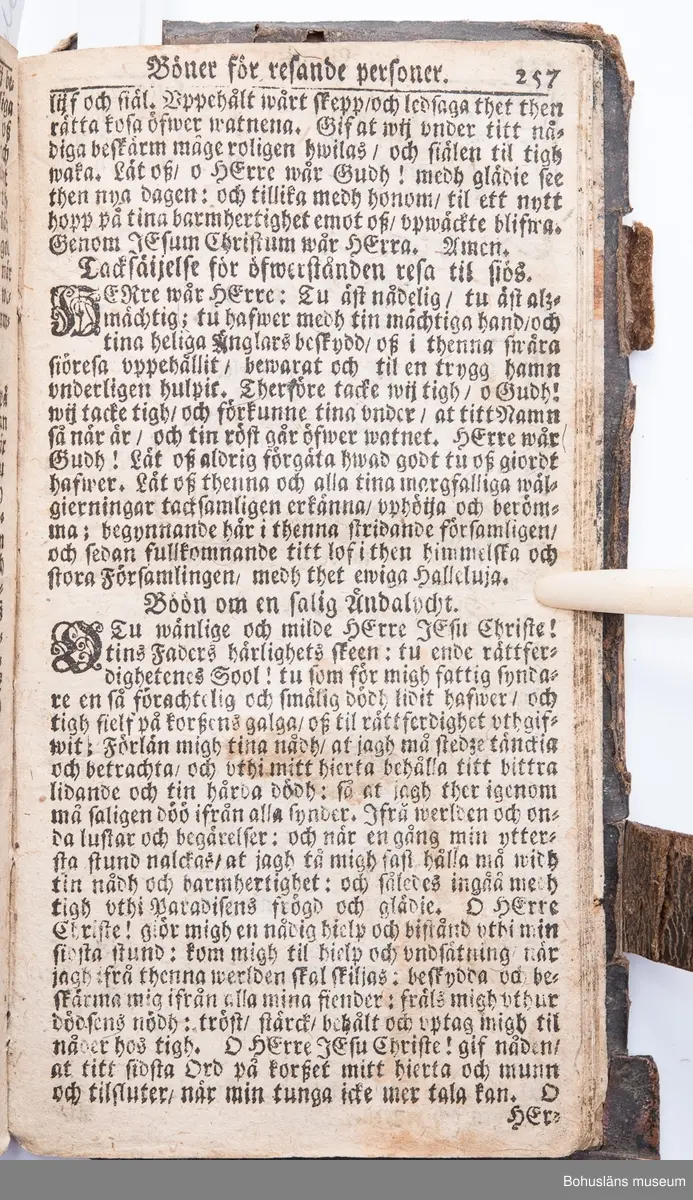 Böner för resande personer. 257
lijf och siäl. Vppehålt wårt skepp/och ledsaga thet then
rätta kosa öfwer watnena. Gif at wij vnder titt nå-
diga beskärm måge roligen hwilas/ och siälen til tigh
waka. Låt oß/ o HErre wår Gudh! medh glädie see
then nya dagen: och tillika medh honom/ til ett nytt
hopp på tina barmhertighet emot oß/ vpwäckte blifwa.
Genom JEsum Christum wår HErra. Amen.
Tacksäijelse för öfwerstånden resa til siös.
HERre wår HErre: Tu äst nådelig/ tu äst alz-
mächtig; tu hafwer medh tin mächtiga hand/och
tina heliga Änglars beskydd/ oß i thenna swåra
siöresa vppehållit/ bewarat och til en trygg hamn
vnderligen hulpit. Therföre tacke wij tigh/ o Gudh!
wij tacke tigh/ och förkunne tina vnder/ at titt Namn
så när är/ och tin röst går öfwer watnet. HErre wår
Gudh! Låt oß aldrig förgäta hwad godt tu oß giordt
hafwer. Låt oß thenna och alla tina margfalliga wäl-
gierningar tacksamligen erkänna/ vphöija och beröm-
ma; begynnande här i thenna stridande församligen/
och sedan fullkomnande titt lof i then himmelska och
stora Församlingen/ medh thet ewiga Halleluja.
Böön om en salig Ändalycht.
O Tu wänlige och milde HErre JEsu Christe!
tins Faders härlighets skeen: tu ende rättfer-
dighetenes Sool! tu som för migh fattig synda-
re en så förachtelig och smälig dödh lidit hafwer/ och
tigh sielf på korßens galga/ oß til rättferdighet vthgif-
wit: Förlän migh tina nådh/ at jagh må stedze tänckia
och betrachta/ och vthi mitt hierta behålla titt bittra
lidande och tin hårda dödh: så at jagh ther igenom
må saligen döö ifrån alla synder. Ifrå werlden och on-
da lustar och begärelser: och när en gång min ytter-
sta stund nalckas/ at jagh tå migh fast hålla må widh
tin nådh och barmhertighet: och således ingåå medh
tigh vthi Paradisens frögd och glädie. O HErre
Christe! giör migh en nådig hielp och bistånd vthi min
sidsta stund: kom migh til hielp och vndsätning/ när
jagh ifrå thenna werlden skal skiljas: beskydda och be-
skärma mig ifrån alla mina fiender: fräls migh vthur
dödsens nödh: tröst/ stärck/ behålt och vptag migh til
nåder hos tigh. O HErre JEsu Christe! gif nåden/
at titt sidsta Ord på korßet mitt hierta och munn
och tilsluter/ när min tunga icke mer tala kan. O
HEr-
Bohusläns museum